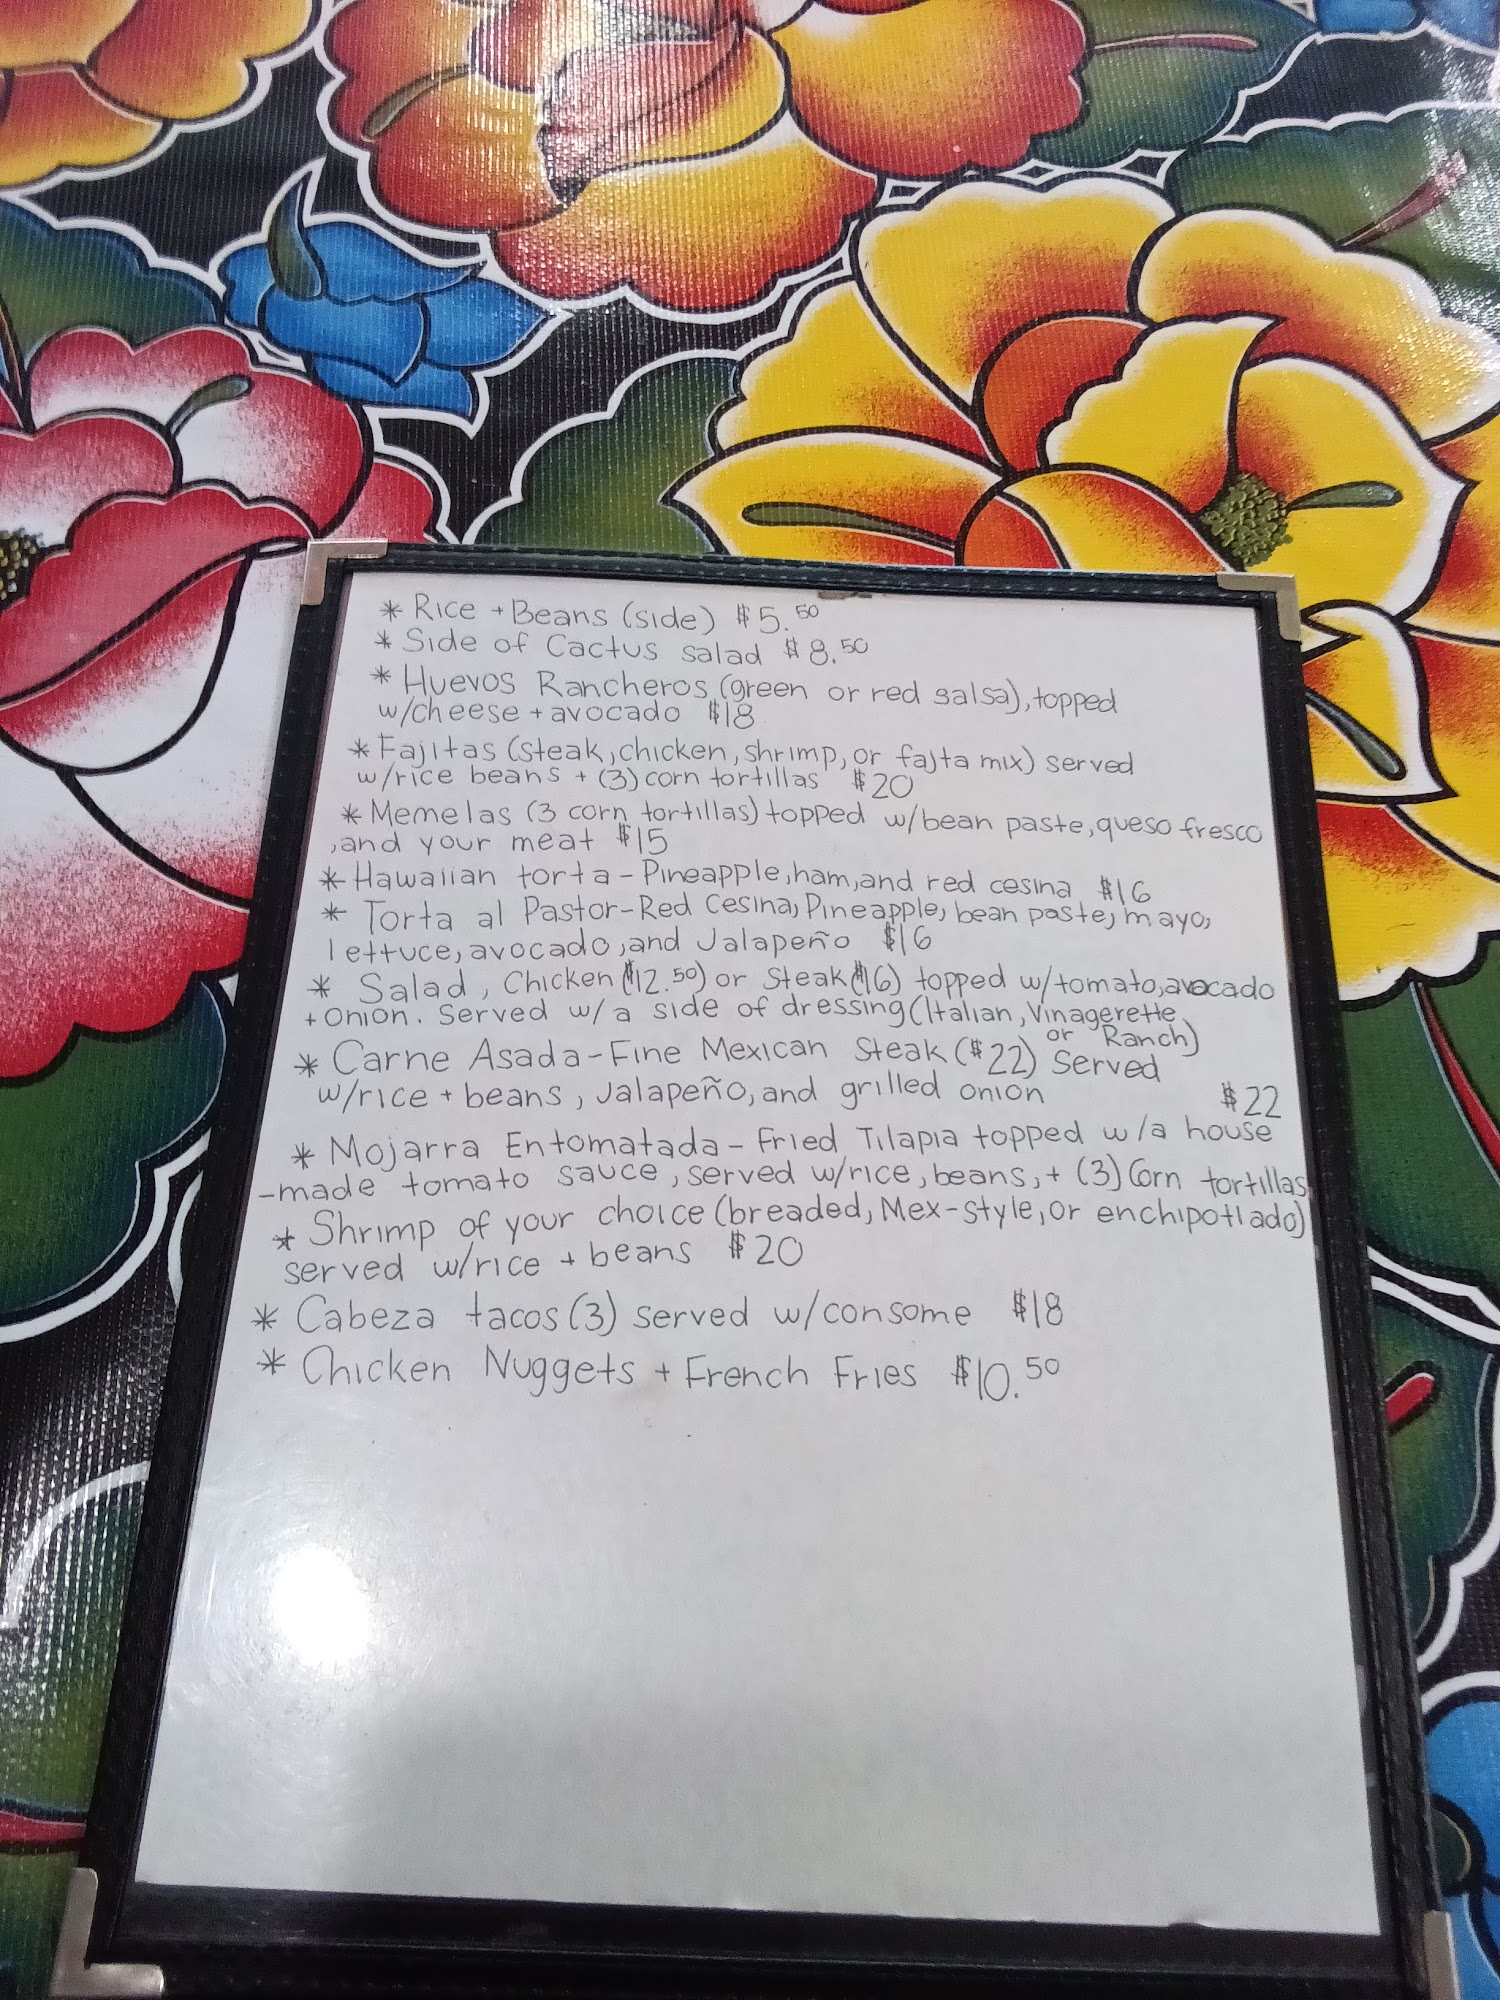 * Rice + Beans (side) $5.50
* Side of Cactus salad $8.50
* Huevos Rancheros (green or red salsa), topped
w/cheese + avocado $18
* Fajitas (steak, chicken, shrimp, or fajta mix) served
w/rice beans + (3) corn tortillas $20
* Memelas (3 corn tortillas) topped w/bean paste, queso fresco
, and your meat $15
* Hawaiian torta - Pineapple, ham, and red cesina $16
* Torta al Pastor - Red Cesina, Pineapple, bean paste, mayo,
lettuce, avocado, and Jalapeño $16
* Salad, Chicken ($12.50) or Steak ($16) topped w/tomato, avocado
+ onion. Served w/a side of dressing (Italian, Vinagerette,
or Ranch)
* Carne Asada - Fine Mexican Steak ($22) Served
w/rice + beans, Jalapeño, and grilled onion
$22
* Mojarra Entomatada - Fried Tilapia topped w/a house
-made tomato sauce, served w/rice, beans, + (3) Corn tortillas
* Shrimp of your choice (breaded, Mex-style, or enchipotlado)
served w/rice + beans $20
* Cabeza tacos (3) served w/consome $18
* Chicken Nuggets + French Fries $10.50